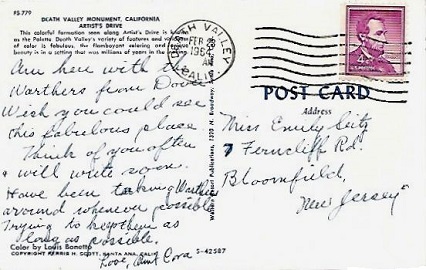 FS-779
DEATH VALLEY MONUMENT, CALIFORNIA
ARTIST'S DRIVE
This colorful formation seen along Artist's Drive is known
as the Palette Death Valley's variety of features and
of color is fabulous, the flamboyant coloring and
beauty is in a setting that was millions of years in the
DEATH VALLEY
FEB
1964
AM
CALIF
4¢
U.S. POSTAGE
Am here with
Warthers from Dover
Wish you could see
this fabulous place
Think of you often
& will write soon.
Have been taking Warthers
around whenever possible
Trying to keep them as
long as possible.
Love, Aunt Cora
POST CARD
Address
Miss Emily Seitz
7 Ferncliff Rd
Bloomfield,
New Jersey
Western Publications, 1220 W. Broadway,
Color by Louis Bonotto
COPYRIGHT FERRIS H. SCOTT, SANTA ANA, CALIF.
S-42587